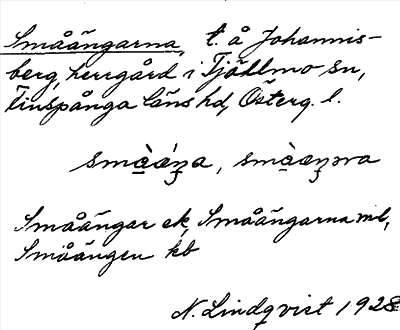 Småängarna, t. å Johannis-
berg, herrgård i Tjällmo sn,
Finspånga läns hd, Österg. l.
småæ̀ŋa, småæŋəna
Småängar ek, Småängarna ml,
Småängen kb
N. Lindqvist 1928